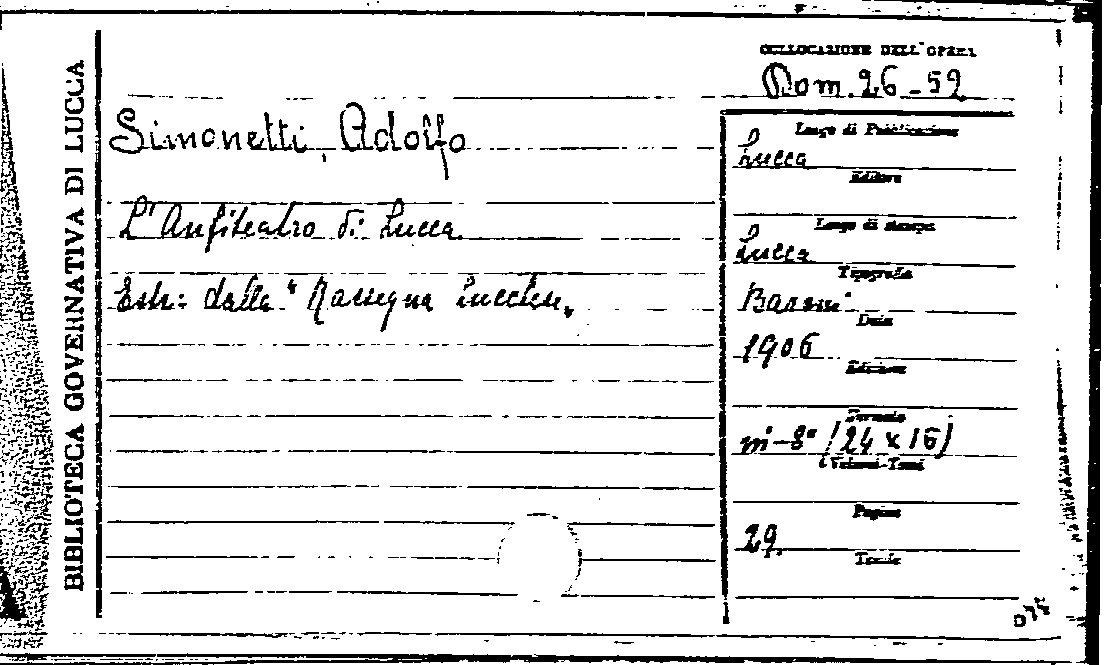 BIBLIOTECA GOVERNATIVA DI LUCCA
COLLOCAZIONE DELL'OPERA
Dom. 26 - 52
Simonetti, Adolfo
L'Anfiteatro di Lucca.
Estr: dalla "Rassegna Lucchese"
Luogo di Pubblicazione
Lucca
Editore
Luogo di stampa
Lucca
Tipografia
Baroni
Data
1906
Edizione
Formato
in-8° (24 x 16)
Volumi-Tomi
Pagine
29.
Tavole